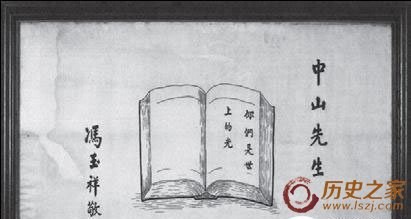 中山先生
你們是世
上的光
馮玉祥敬
历史之家
www.lszj.com